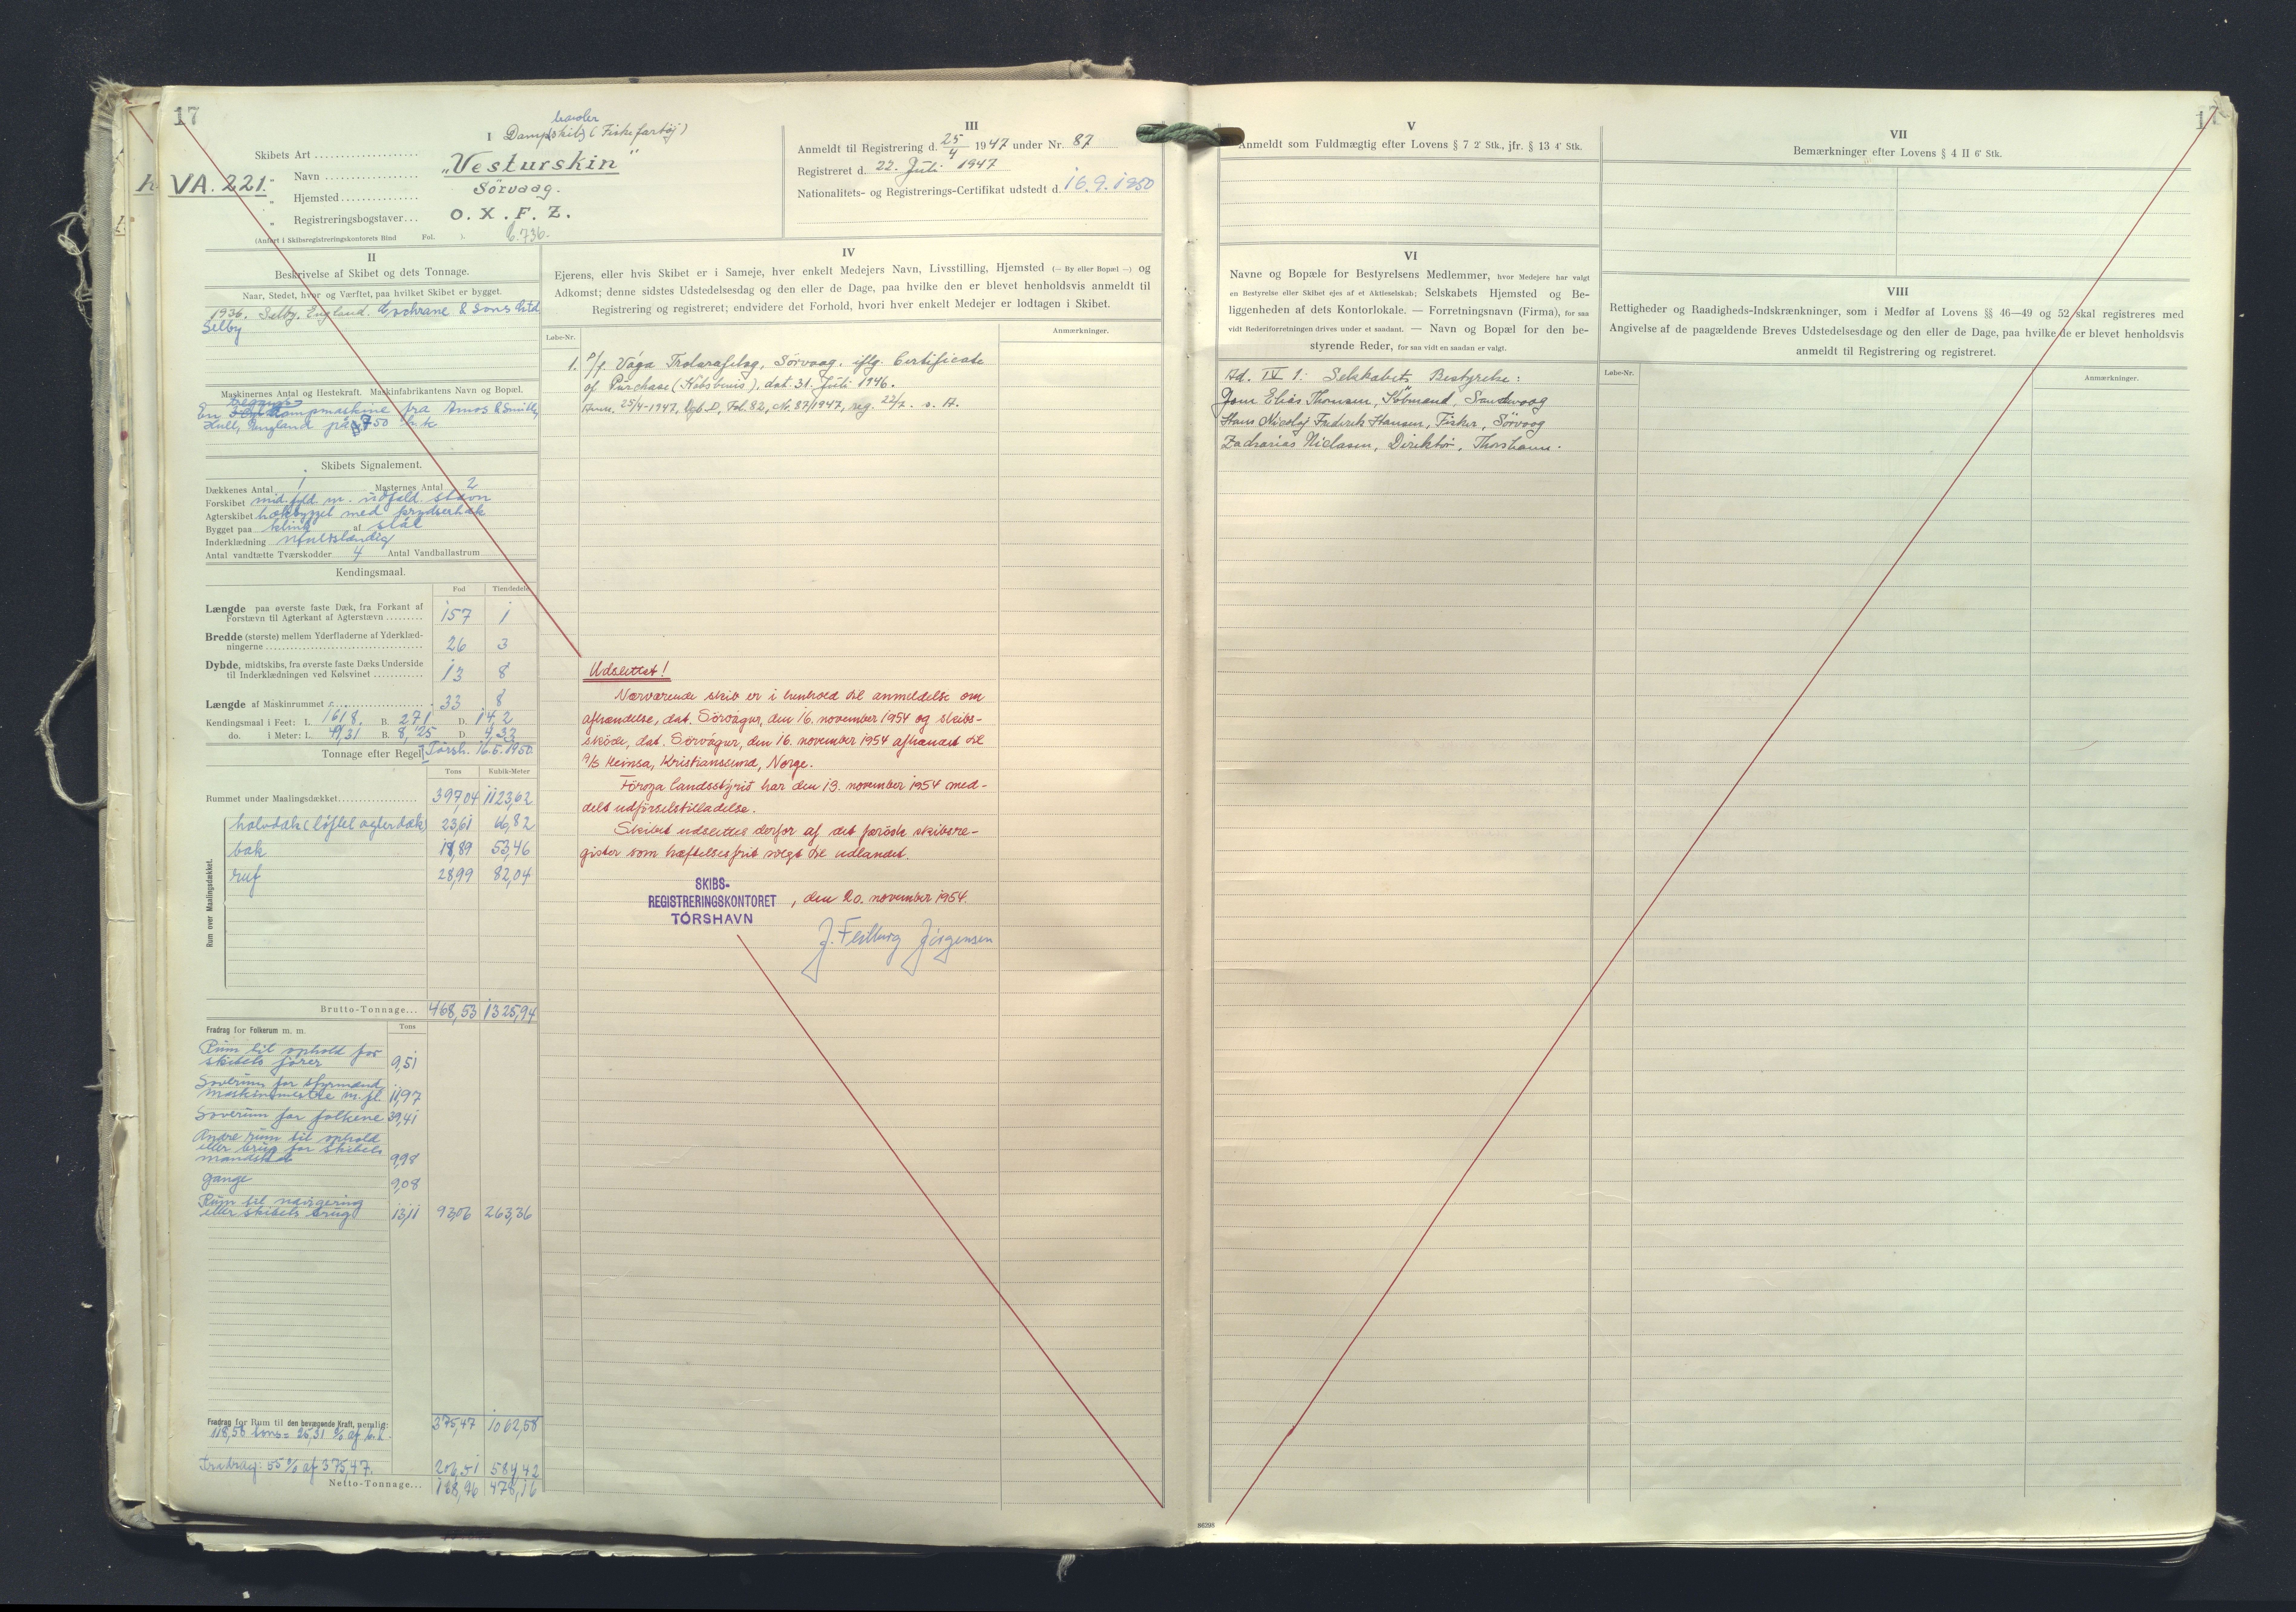 17
I
trawler
Dampskib (Fiskefartøj)
Skibets Art
VA. 221.
„ Navn „Vesturskin"
„ Hjemsted Sörvaag.
„ Registreringsbogstaver... O. X. F. Z.
(Anført i Skibsregistreringskontorets Bind Fol. ). 6.736.
II
Beskrivelse af Skibet og dets Tonnage.
Naar, Stedet, hvor og Værftet, paa hvilket Skibet er bygget.
1936. Selby, England. Cochrane & Sons Ltd
Selby
Maskinernes Antal og Hestekraft. Maskinfabrikantens Navn og Bopæl.
En dampmaskine fra Amos & Smith,
Hull, England på 750 h.k
Skibets Signalement.
Dækkenes Antal 1 Masternes Antal 2
Forskibet mid.fyld m. udfald. stævn
Agterskibet hækbygget med krydserhæk
Bygget paa klink af stål
Inderklædning ufuldstændig
Antal vandtætte Tværskodder 4 Antal Vandballastrum
Kendingsmaal.
Fod Tiendedele
Længde paa øverste faste Dæk, fra Forkant af
Forstævn til Agterkant af Agterstævn 157 1
Bredde (største) mellem Yderfladerne af Yderklæd-
ningerne 26 3
Dybde, midtskibs, fra øverste faste Dæks Underside
til Inderklædningen ved Kølsvinet 13 8
Længde af Maskinrummet 33 8
Kendingsmaal i Feet: L. 161,8. B. 27,1 D. 14,2
do. i Meter: L. 49,31 B. 8,25 D. 4,32
Tonnage efter Regel I Torsh. 16.5.1950
Tons Kubik-Meter
Rummet under Maalingsdækket 397,04 1123,62
Rum over Maalingsdækket.
halvdæk (løftet agterdæk) 23,61 66,82
bak 18,89 53,46
ruf 28,99 82,04
Brutto-Tonnage... 468,53 1325,94
Fradrag for Folkerum m. m. Tons
Rum til ophold for
skibets fører 9,51
Soverum for styrmænd,
maskinmestre m.fl. 11,97
Soverum for folkene 39,41
Andre rum til ophold
eller brug for skibets
mandskab 9,98
gange 9,08
Rum til navigering
eller skibets brug 13,11 93,06 263,36
375,47 1062,58
Fradrag for Rum til den bevægende Kraft, nemlig:
118,58 tons = 25,31 % af b.t.
Fradrag: 55 % af 375,47. 206,51 584,42
Netto-Tonnage... 168,96 478,16
III
Anmeldt til Registrering d. 25/4 1947 under Nr. 87
Registreret d. 22. Juli 1947
Nationalitets- og Registrerings-Certifikat udstedt d. 16.9.1950
IV
Ejerens, eller hvis Skibet er i Sameje, hver enkelt Medejers Navn, Livsstilling, Hjemsted (— By eller Bopæl —) og
Adkomst; denne sidstes Udstedelsesdag og den eller de Dage, paa hvilke den er blevet henholdsvis anmeldt til
Registrering og registreret; endvidere det Forhold, hvori hver enkelt Medejer er lodtagen i Skibet.
Løbe-Nr. Anmærkninger.
1. P/f. Vága Trolarafelag, Sörvaag, iflg. Certificate
of Purchase (Købsbevis), dat. 31. Juli 1946.
Anm. 25/4-1947, Dgb. D, Fol. 82, Nr. 87/1947, reg. 22/7. s. A.
Udslettet!
Nærværende skib er i henhold til anmeldelse om
afhændelse, dat. Sörvágur, den 16. november 1954 og skibs-
skøde, dat. Sörvágur, den 16. november 1954 afhændet til
A/S Heinsa, Kristianssund, Norge.
Føroya landsstýrið har den 19. november 1954 med-
delt udførselstilladelse.
Skibet udslettes derfor af det færøske skibsre-
gister som hæftelsesfrit solgt til udlandet.
SKIBS-
REGISTRERINGSKONTORET
TÓRSHAVN
, den 20. november 1954.
Jørgensen
17
V
Anmeldt som Fuldmægtig efter Lovens § 7 2' Stk., jfr. § 13 4' Stk.
VI
Navne og Bopæle for Bestyrelsens Medlemmer, hvor Medejere har valgt
en Bestyrelse eller Skibet ejes af et Aktieselskab; Selskabets Hjemsted og Be-
liggenheden af dets Kontorlokale. — Forretningsnavn (Firma), for saa
vidt Rederiforretningen drives under et saadant. — Navn og Bopæl for den be-
styrende Reder, for saa vidt en saadan er valgt.
Ad. IV 1: Selskabets Bestyrelse:
Joen Elias Thomsen, Købmand, Sandevaag
Hans Nicolaj Frederik Hansen, Fisker, Sörvaag
Zacharias Niclasen, Direktør, Thorshavn.
VII
Bemærkninger efter Lovens § 4 II 6' Stk.
VIII
Rettigheder og Raadigheds-Indskrænkninger, som i Medfør af Lovens §§ 46—49 og 52 skal registreres med
Angivelse af de paagældende Breves Udstedelsesdage og den eller de Dage, paa hvilke de er blevet henholdsvis
anmeldt til Registrering og registreret.
Løbe-Nr. Anmærkninger.
86298